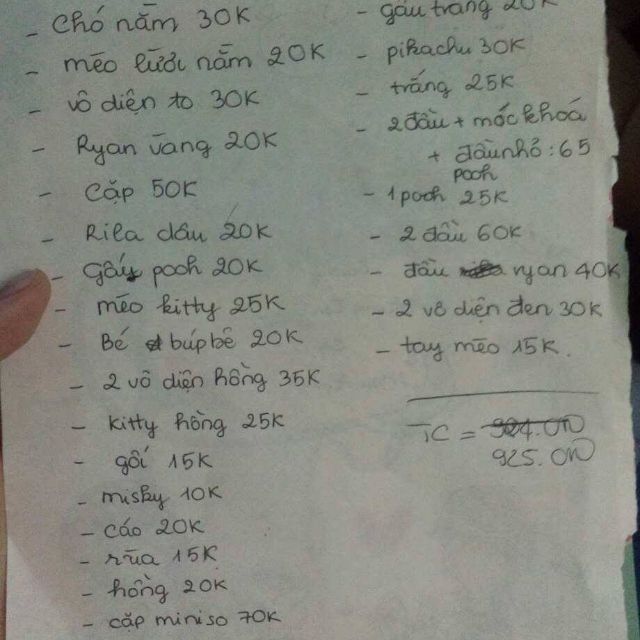 - chó nằm 30K
- méo lười nằm 20K
- vô diện to 30K
- Ryan vàng 20K
- Cặp 50K
- Rila dâu 20K
- Gấu pooh 20K
- méo kitty 25K
- Bé búp bê 20K
- 2 vô diện hồng 35K
- kitty hồng 25K
- gối 15K
- misky 10K
- cáo 20K
- rùa 15K
- hồng 20K
- cặp miniso 70K
- gấu trắng 20K
- pikachu 30K
- trắng 25K
- 2 đầu + móc khoá
+ đầu nhỏ: 65
pooh
- 1 pooh 25K
- 2 đầu 60K
- đầu ryan 40K
- 2 vô diện đen 30K
- tay méo 15K.
TC =
925.0N